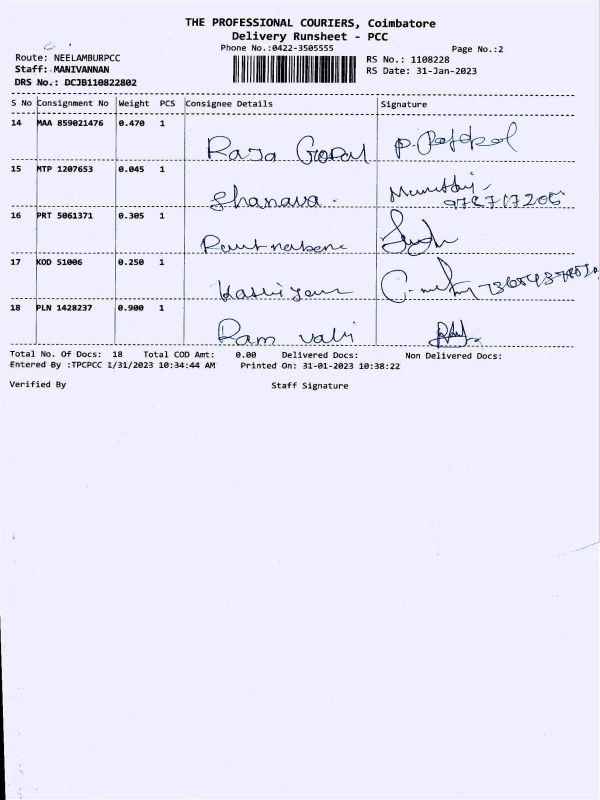 THE PROFESSIONAL COURIERS, Coimbatore
Delivery Runsheet - PCC
Phone No.:0422-3505555 Page No.:2
Route: NEELAMBURPCC RS No.: 1108228
Staff: MANIVANNAN RS Date: 31-Jan-2023
DRS No.: DCJB110822802
S No Consignment No Weight PCS Consignee Details Signature
14 MAA 859021476 0.470 1
Raja Gopal
15 MTP 1207653 0.045 1
Shanava.
16 PRT 5061371 0.305 1
17 KOD 51006 0.250 1
18 PLN 1428237 0.900 1
Ram vali
Total No. Of Docs: 18 Total COD Amt: 0.00 Delivered Docs: Non Delivered Docs:
Entered By :TPCPCC 1/31/2023 10:34:44 AM Printed On: 31-01-2023 10:38:22
Verified By Staff Signature